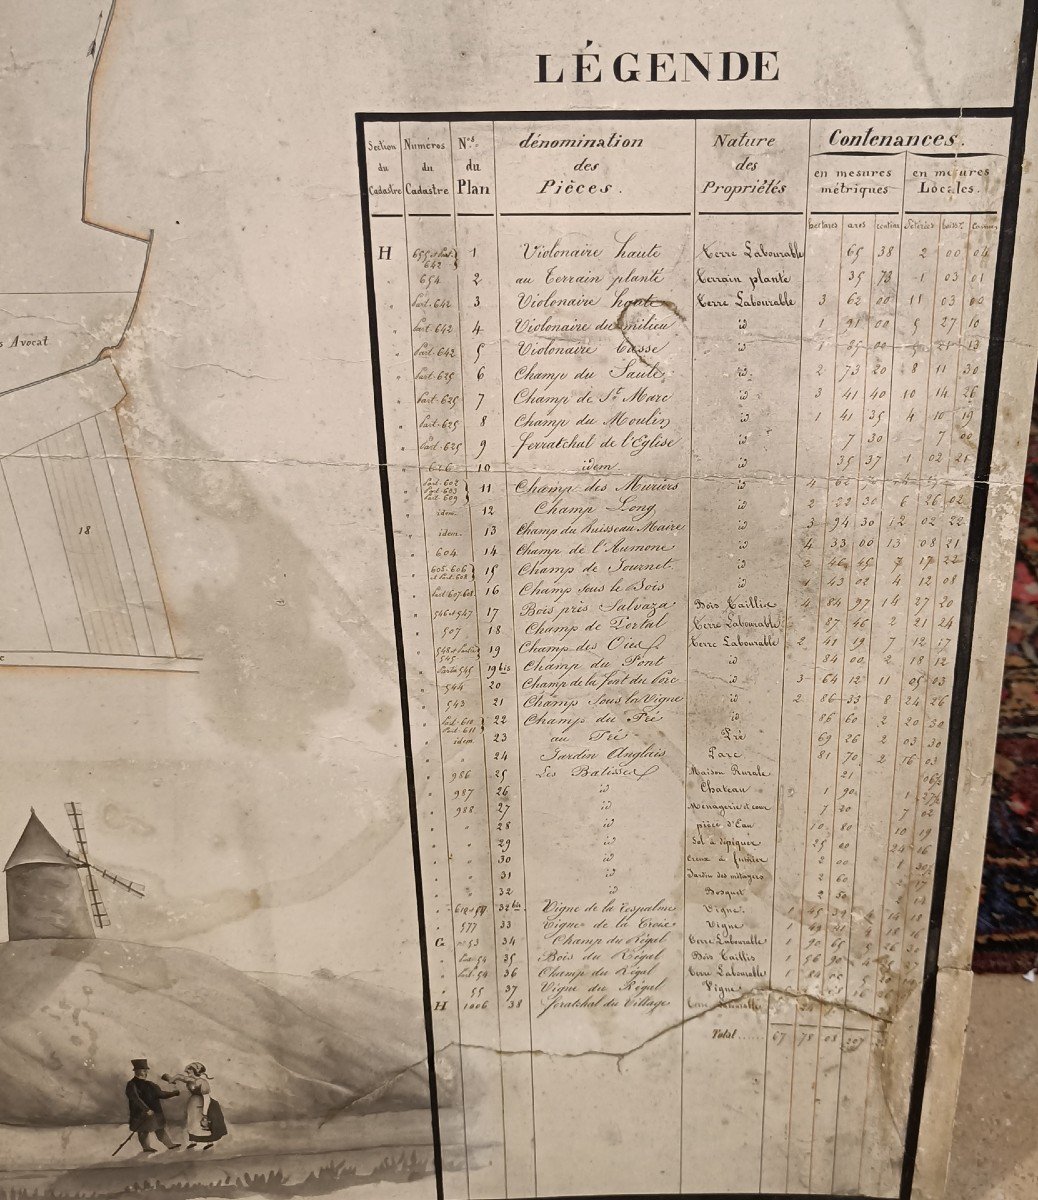 LÉGENDE
Section du Cadastre | Numéros du Cadastre | N.os du Plan | dénomination des Pièces. | Nature des Propriétés | Contenances.
en mesures métriques | en mesures Locales.
hectares ares centiar Sétérées
H 655 et Part. 642 1 Violonaire haute Terre Labourable 65 38 2 00 04
654 2 au Terrain planté Terrain planté 35 73 1 03 01
Part. 642 3 Violonaire haute Terre Labourable 3 62 00 11 03
s Avocat
Part. 642 4 Violonaire du milieu id 1 91 00 5 27 10
Part. 642 5 Violonaire basse id 1 85 00 5 21 13
Part. 625 6 Champ du Saule id 2 73 20 8 11 30
Part. 625 7 Champ de St Marc id 3 41 40 10 14 26
Part. 625 8 Champ du Moulin id 1 41 35 4 10 19
Part. 625 9 ferratchal de l'Eglise id 7 30 7 00
626 10 idem id 35 37 1 02 21
Part. 602 Part. 603 Part. 609 11 Champ des Muriers id 4 62
idem. 12 Champ Long id 2 22 30 6 26 02
idem. 13 Champ du Ruisseau Maire id 3 94 30 12 02 22
18
604 14 Champ de l'Aumone id 4 33 00 13 08 21
605-606 et Part. 608 15 Champ de Tournel. id 2 46 45 7 17 22
Part. 607-608 16 Champ sous le Bois id 1 43 02 4 12 08
546 et 547 17 Bois près Salvaza Bois Taillis 4 84 97 14 27 20
507 18 Champ de Portal Terre Labourable 87 46 2 21 24
548 et Partie 545 19 Champ des Oies Terre Labourable 2 41 19 7 12 17
Partie 545 19 bis Champ du Pont id 84 00 2 18 12
544 20 Champ de la font du porc id 3 64 12 11 05 03
543 21 Champ sous la Vigne id 2 86 33 8 24 26
Part. 610 Part. 611 22 Champ du Pré id 86 60 2 20 30
idem. 23 au Pré Pré 69 26 2 03 30
24 Jardin Anglais Parc 81 70 2 16 03
986 25 Les Batisses Maison Rurale 21 06½
987 26 id Chateau 1 90 1 27½
988 27 id Menagerie et cour 7 20 7 02
28 id pièce d'Eau 10 80 10 19
29 id Sol à dépiquer 25 00 24 16
30 id Creux à fumier 2 00 1
31 id Jardin des métayers 2 60 2 17
32 id Bosquet 2 50 2
32 bis Vigne de la Vigne. 1 45 4 14 18
577 33 Vigne de la Croix Vigne 1 18 16
G 53 34 Champ du Régal Terre Labourable 1 90 65 5 26
Part. 54 35 Bois du Régal Bois Taillis 1 56 90 4
Part. 54 36 Champ du Régal Terre Labourable 1 84 5 20
55 37 Vigne du Régal Vigne
H 1006 38 feratchal du Village Terre Labourable
Total...... 67 78 08 207